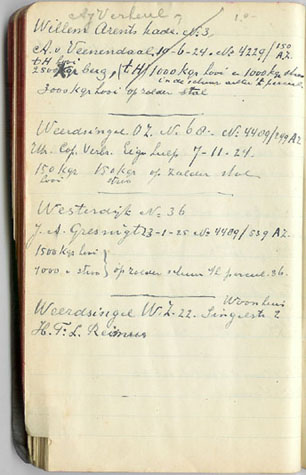 Aj Verheul 1,0-
Willem Arents kade. No 3
A. v. Veenendaal. 19-6-24. No 4229/150 AZ.
2500 kgr berg / t H/1000 kgr hooi en 1000 kgr stroo
in de schuur achter t perceel
3000 kgr hooi op zolder stal
Weerdsingel O.Z. No 68. No 4409/299 AZ
Utr. Cop. Verbr. Eigen hulp 7-11-24.
150 kgr hooi 150 kgr stroo op zolder stal
Westerdijk No 36
J. A. Gresnigt 23-1-25 No 4409/539 AZ
1500 kgs hooi
1000 " stroo } op zolder schuur 'tl perceel 36.
Woonhuis
Weerdsingel W.Z. 22. Singelstr 2
H. F. L. Reimus